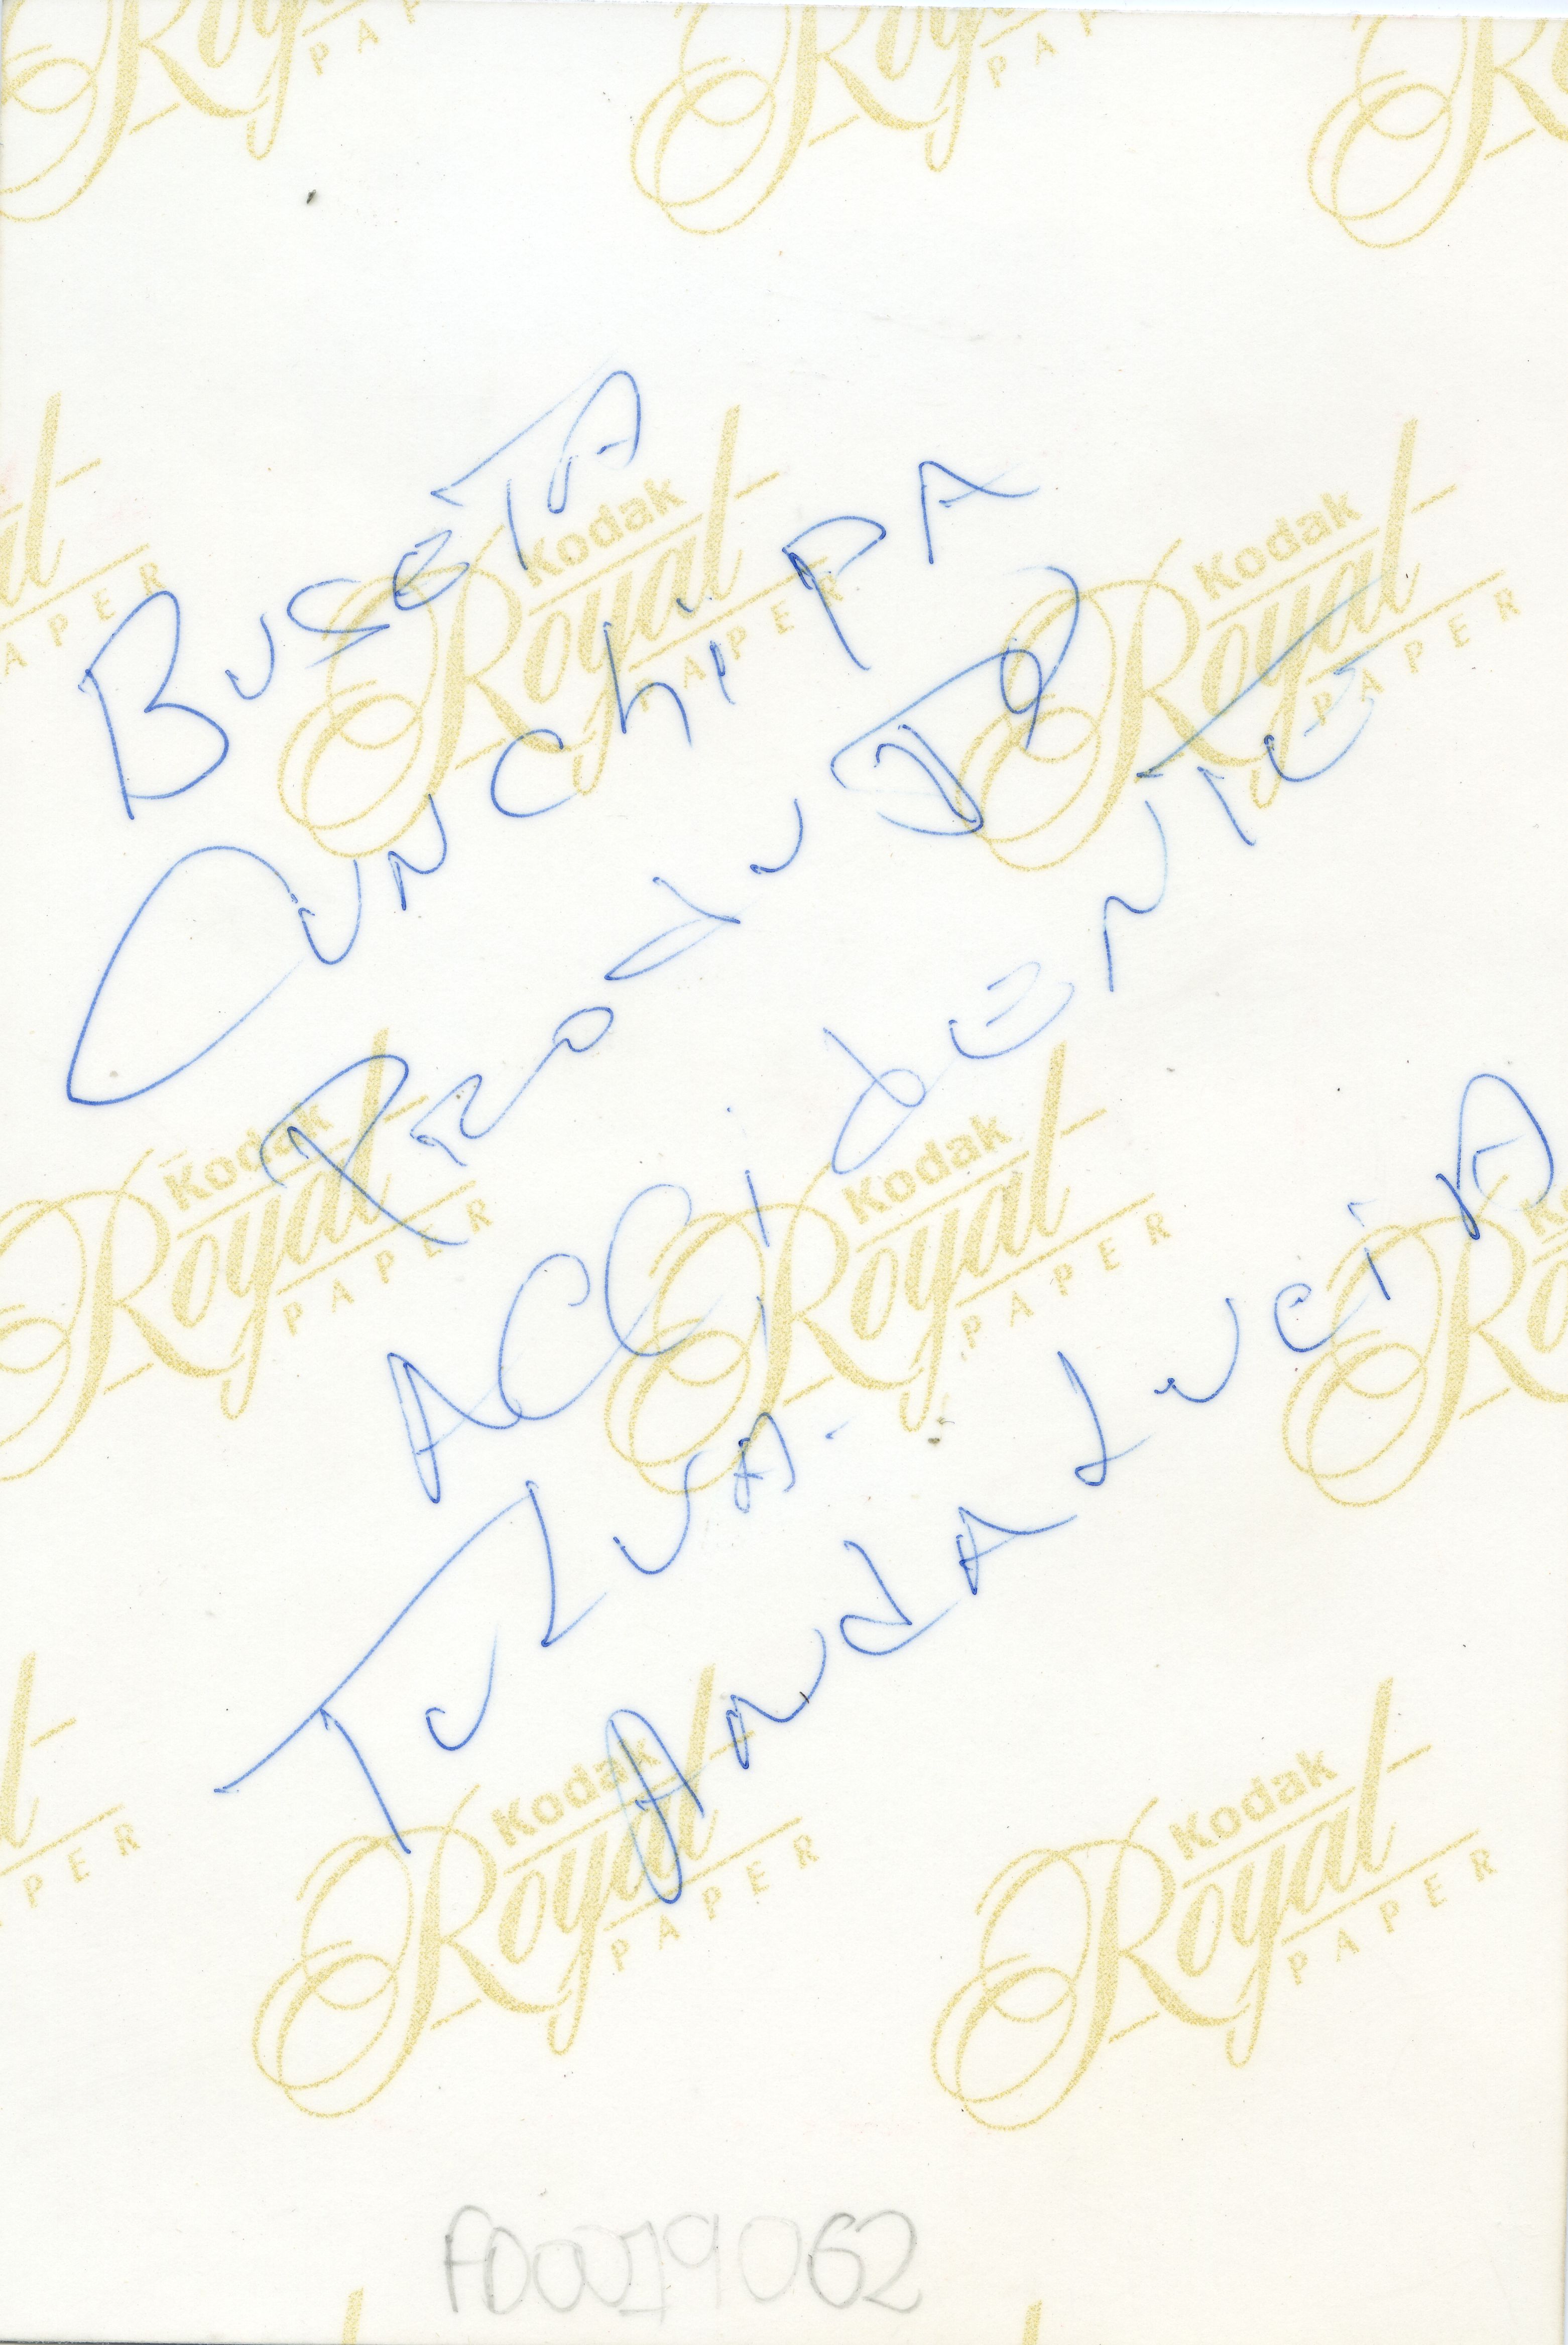 BuseTA
CunchipA
ProduJo
ACCidENTE
TuLuA-
AndALuciA
FD0019062
Kodak
Royal
PAPER
Kodak
Royal
PAPER
Kodak
Royal
PAPER
Kodak
Royal
PAPER
Kodak
Royal
PAPER
Kodak
Royal
PAPER